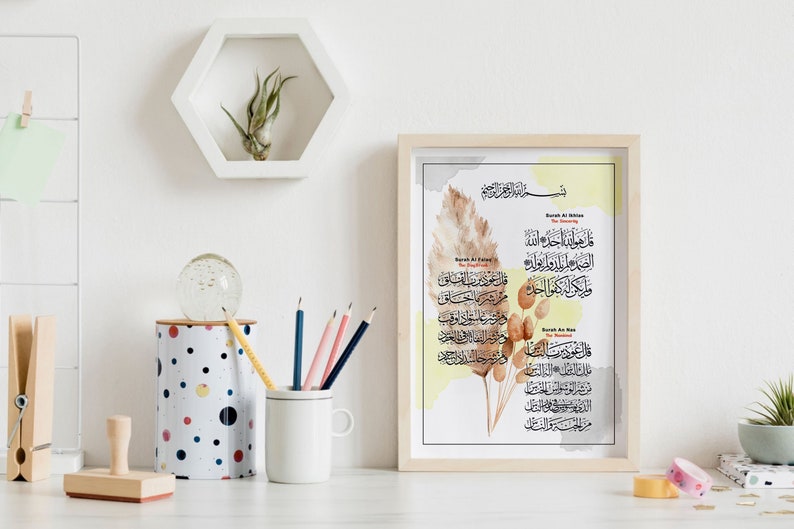 بسم الله الرحمن الرحيم
Surah Al Ikhlas
The Sincerity
قل هو الله أحد الله
الصمد لم يلد ولم يولد
ولم يكن له كفوا أحد
Surah Al Falaq
The Daybreak
قل أعوذ برب الفلق
من شر ما خلق
ومن شر غاسق إذا وقب
ومن شر النفاثات في العقد
ومن شر حاسد إذا حسد
Surah An Nas
The Mankind
قل أعوذ برب الناس
ملك الناس إله الناس
من شر الوسواس الخناس
الذي يوسوس في صدور الناس
من الجنة والناس